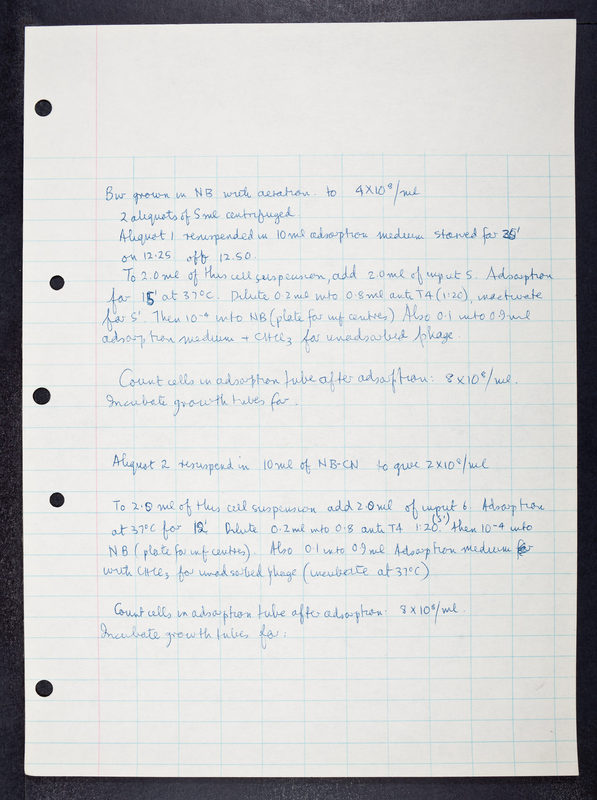 Bw grown in NB with aeration. to 4×10⁸/ml
2 aliquots of 5ml centrifuged.
Aliquot 1 resuspended in 10ml adsorption medium starved for 25'
on 12.25 off 12.50.
To 2.0ml of this cell suspension, add 2.0ml of input 5. Adsorption
for 15' at 37°C. Dilute 0.2ml into 0.8ml anti T4 (1:20), inactivate
for 5'. Then 10⁻⁴ into NB (plate for inf centres) Also 0.1 into 0.9ml
adsorption medium + CHCl₃ for unadsorbed phage.
Count cells in adsorption tube after adsorption: 8×10⁸/ml.
Incubate growth tubes for.
Aliquot 2 resuspend in 10ml of NB-CN to give 2×10⁸/ml
To 2.0ml of this cell suspension add 2.0ml of input 6 Adsorption
at 37°C for 12' Dilute 0.2ml into 0.8 anti T4 1:20 (5') then 10⁻⁴ into
NB (plate for inf centres). Also 0.1 into 0.9ml Adsorption medium
with CHCl₃ for unadsorbed phage (incubate at 37°C)
Count cells in adsorption tube after adsorption: 8×10⁸/ml.
Incubate growth tubes for: